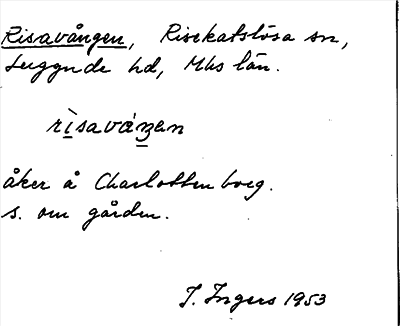 Risavången, Risekatslösa sn,
Luggude hd, Mhs län.
rìsaváŋen
åker å Charlottenborg.
s. om gården.
I. Ingers 1953